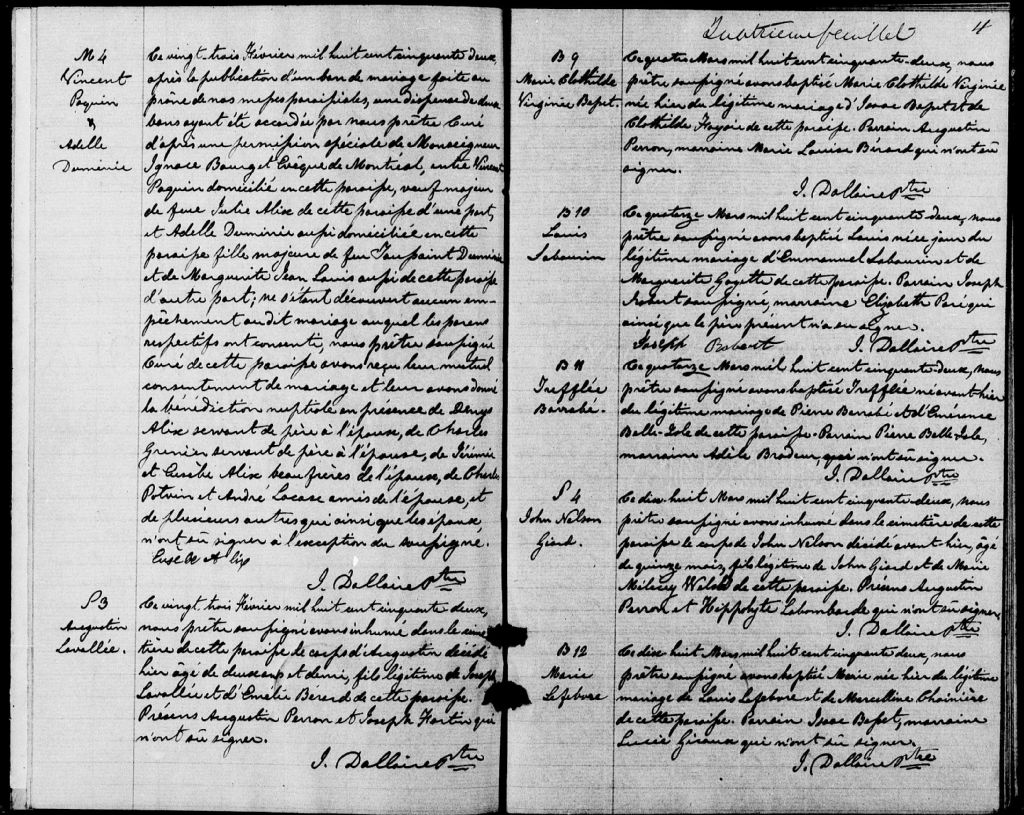 M 4
Vincent
Paquin
&
Adelle
Duminie
Ce vingt-trois Février mil huit cent cinquante deux,
après la publication d'un ban de mariage faite au
prône de nos messes paroissiales, une dispense de deux
bans ayant été accordée par nous prêtre Curé
d'après une permission spéciale de Monseigneur
Ignace Bourget Evêque de Montréal, entre Vincent
Paquin domicilié en cette paroisse, veuf majeur
de feue Julie Alix de cette paroisse d'une part,
et Adelle Duminie aussi domiciliée en cette
paroisse fille majeure de feu Toussaint Duminie
et de Marguerite Jean Louis aussi de cette paroisse
d'autre part; ne s'étant découvert aucun em-
pêchement au dit mariage auquel les parens
respectifs ont consenti, nous prêtre soussigné
Curé de cette paroisse avons reçu leur mutuel
consentement de mariage et leur avons donné
la bénédiction nuptiale en présence de Denys
Alix servant de père à l'époux, de Charles
Grenier servant de père à l'épouse, de Jérémie
et Eusèbe Alix beaufrères de l'époux, de Charles
Potvin et André Lacasse amis de l'épouse, et
de plusieurs autres qui ainsi que les époux,
n'ont sû signer à l'exception du soussigné.
Eusèbe Alix
J. Dallaire Ptre
S 3
Augustin
Lavallée.
Ce vingt trois Février mil huit cent cinquante deux,
nous prêtre soussigné avons inhumé dans le cime
tière de cette paroisse le corps d'Augustin décédé
hier âgé de deux ans et demi, fils légitime de Joseph
Lavallée et d'Emélie Berard de cette paroisse.
Présens Augustin Perron et Joseph Fortin qui
n'ont sû signer.
J. Dallaire Ptre
Quatrieme feuillet 4
B 9
Marie Clothilde
Virginie Bapet.
Ce quatre Mars mil huit cent cinquante-deux, nous
prêtre soussigné avons baptisé Marie Clothilde Virginie
née hier du légitime mariage d'Isaac Bapet et de
Clothilde de cette paroisse. Parrain Augustin
Perron, marraine Marie Louise Bérard qui n'ont sû
signer.
J. Dallaire Ptre
B 10
Louis
Sabourin
Ce quatorze Mars mil huit cent cinquante-deux, nous
prêtre soussigné avons baptisé Louis né ce jour du
légitime mariage d'Emmanuel Sabourin et de
Marguerite Goyette de cette paroisse. Parrain Joseph
Robert soussigné, marraine Elizabeth Paré qui
ainsi que le père présent n'a su signer.
Joseph Robert J. Dallaire Ptre
B 11
Treffllée
Barrabé.
Ce quatorze Mars mil huit cent cinquante deux, nous
prêtre soussigné avons baptisé Trefflée né avant hier
du légitime mariage de Pierre Barrabé et d'Emérence
Belle-Isle de cette paroisse. Parrain Pierre Belle-Isle,
marraine Adèle Brodeur, qui n'ont sû signer.
J. Dallaire Ptre
S 4
John Nelson
Giard.
Ce dix-huit Mars mil huit cent cinquante-deux, nous
prêtre soussigné avons inhumé dans le cimetière de cette
paroisse le corps de John Nelson décédé avant hier, âgé
de quinze mois, fils légitime de John Giard et de Marie
de cette paroisse. Présens Augustin
Perron et Hippolyte Labombarde qui n'ont sû signer
J. Dallaire Ptre
B 12
Marie
Lefebvre
Ce dix-huit Mars mil huit cent cinquante deux, nous
prêtre soussigné avons baptisé Marie née hier du légitime
mariage de Louis Lefebvre et de Marcelline Chainière
de cette paroisse. Parrain Isaac Bapet, marraine
Lucie Giroux qui n'ont sû signer.
J. Dallaire Ptre